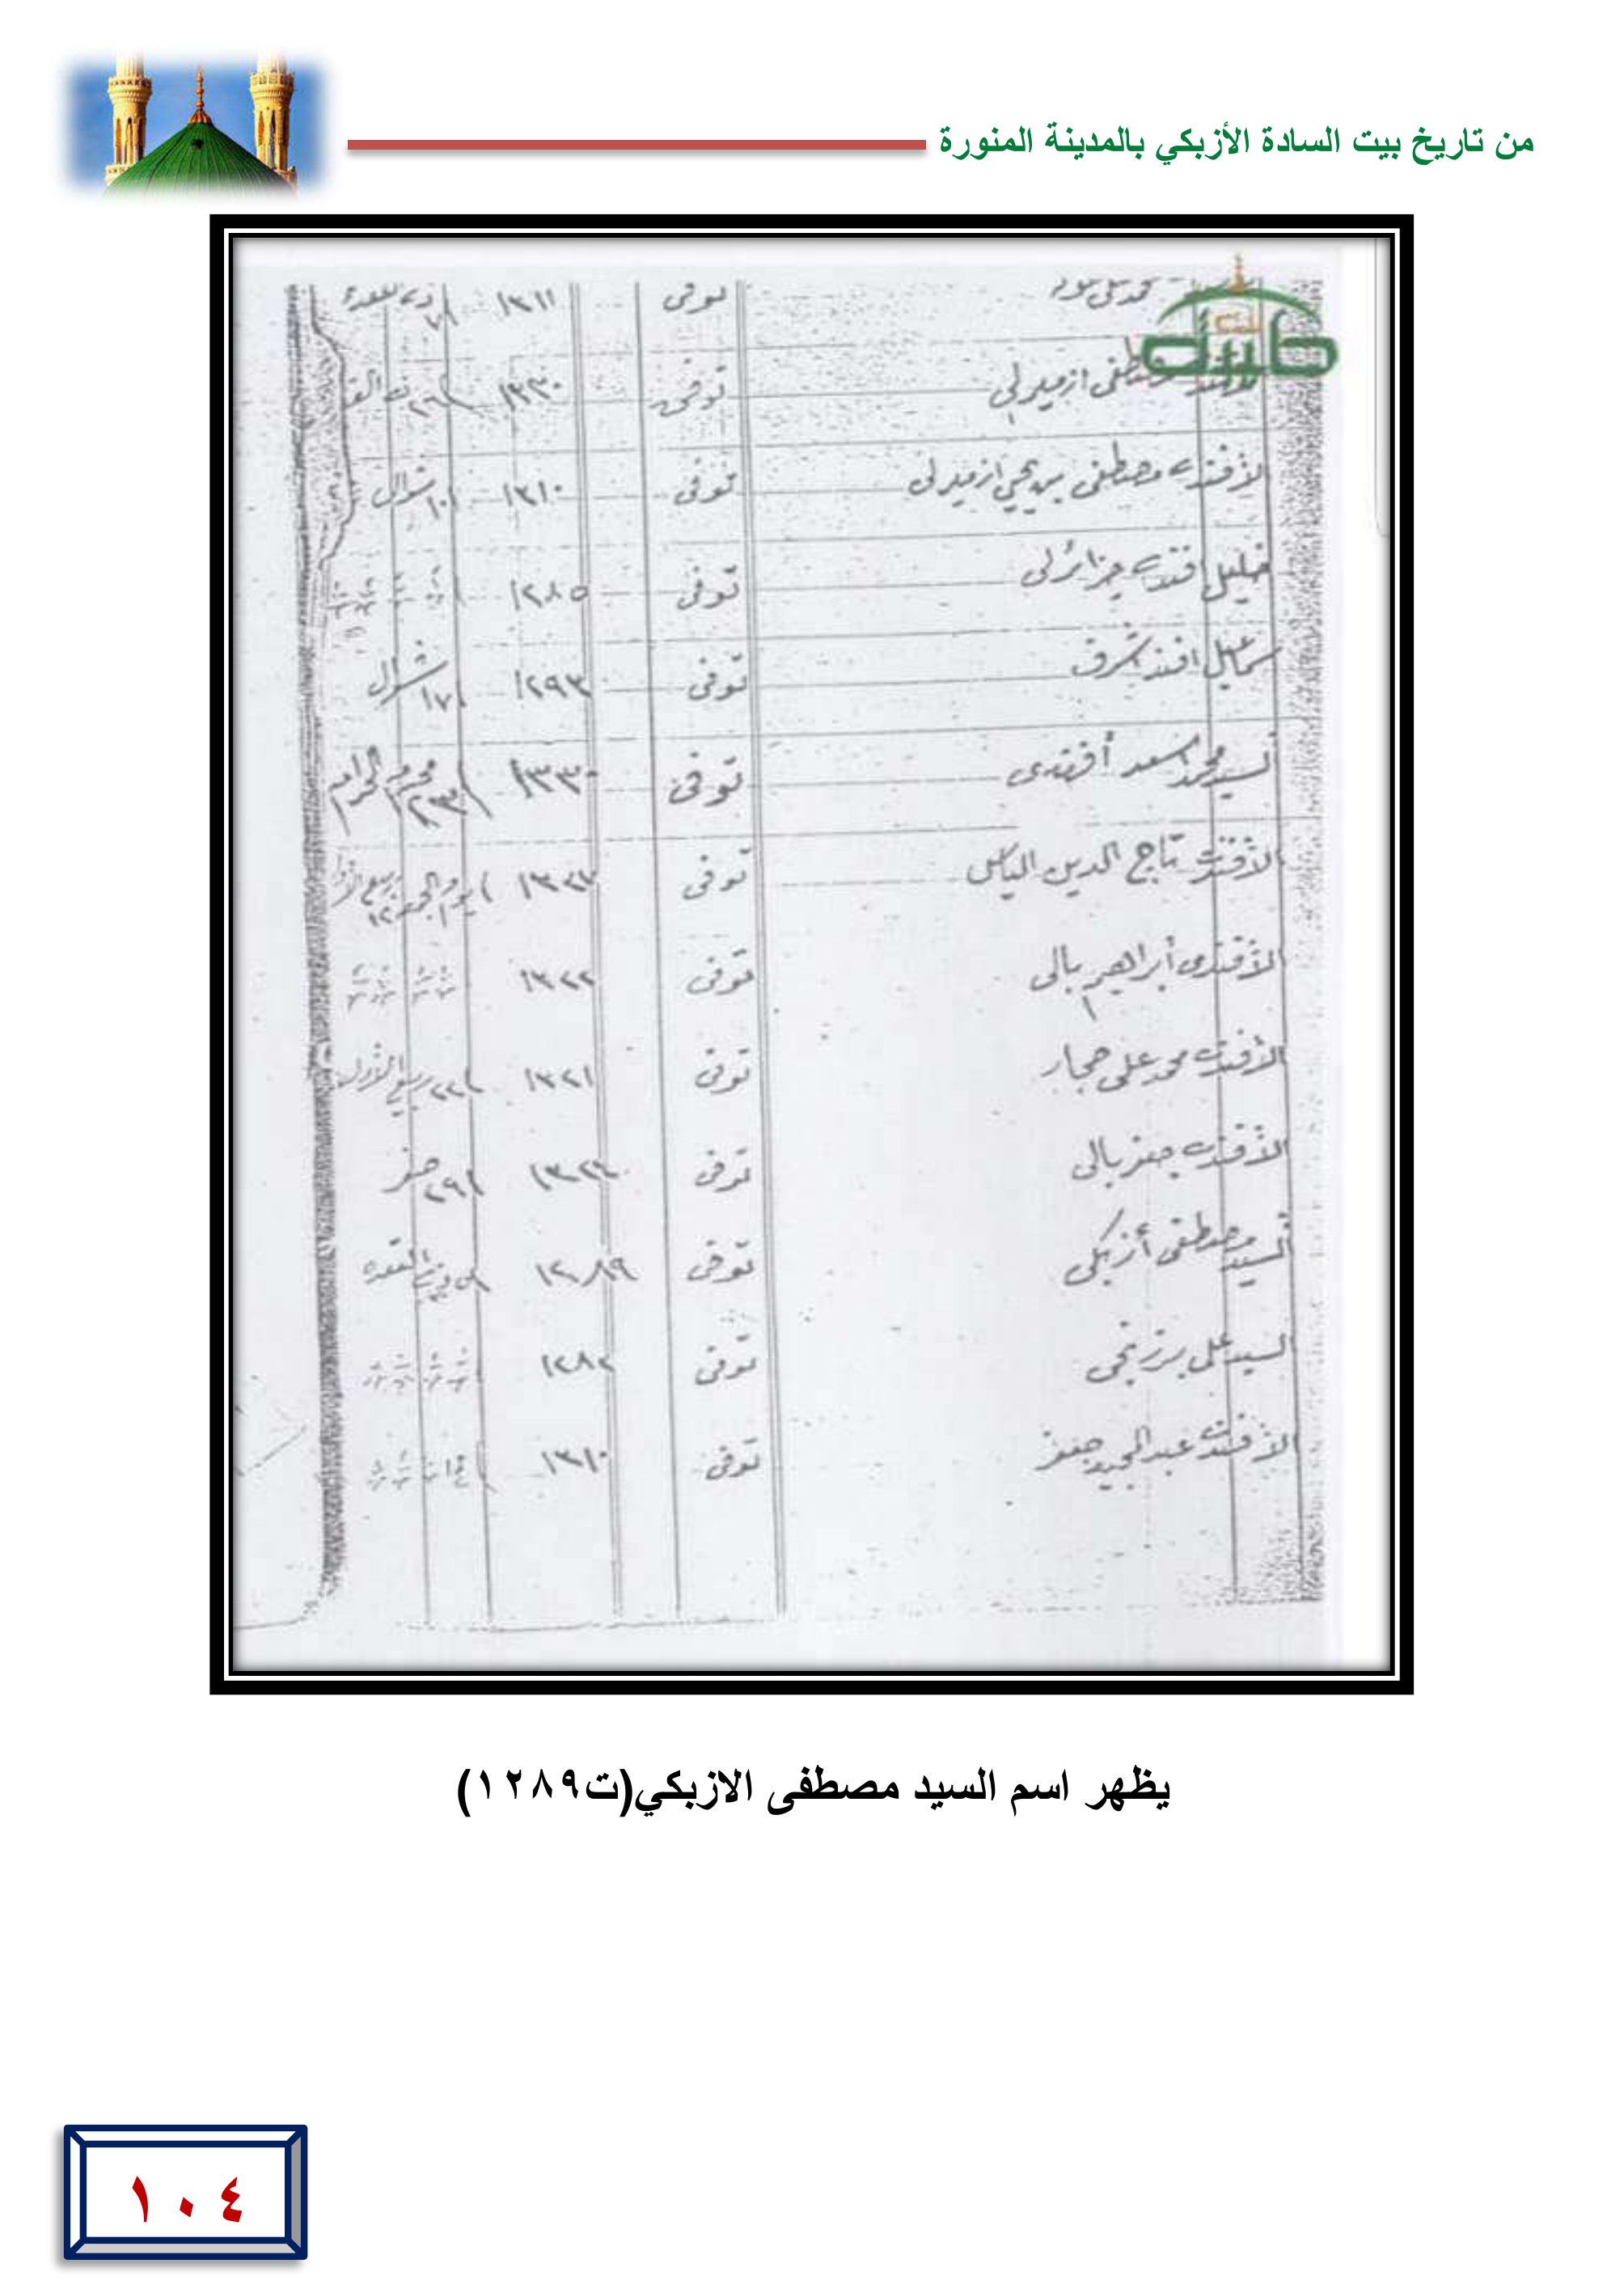 من تاريخ بيت السادة الأزبكي بالمدينة المنورة
توفى ١٣١١
مصطفى ازميرلي توفى ١٣٣٠ ٢٦
الأفندي مصطفى بن يحيى ازميرلى توفى ١٣١٠ ١٠ شوال
خليل افندي جزائرلى توفى ١٢٨٥
سماعيل افندي شرف توفى ١٢٩٣ ١٧ شوال
السيد محمد اسعد أفندى توفى ١٣٣٠ ٢٣ محرم الحرام
الأفندي تاج الدين الياس توفى يوم الجمعة ١٢ ربيع الأول
الأفندى أبراهيم بالى توفى ١٣٢٢
الأفندي محمد على حجار توفى ١٣٢١ ٢٢ ربيع الأول
الأفندي جعفر بالى توفى ١٣٢٤ ٢٩ صفر
السيد مصطفى أزبكى توفى ١٢٨٩ القعده
السيد على برزنجى توفى ١٢٨٢
الأفندي عبد المجيد جعفر توفى ١٣١٠
طيبة
يظهر اسم السيد مصطفى الازبكي(ت١٢٨٩)
١٠٤